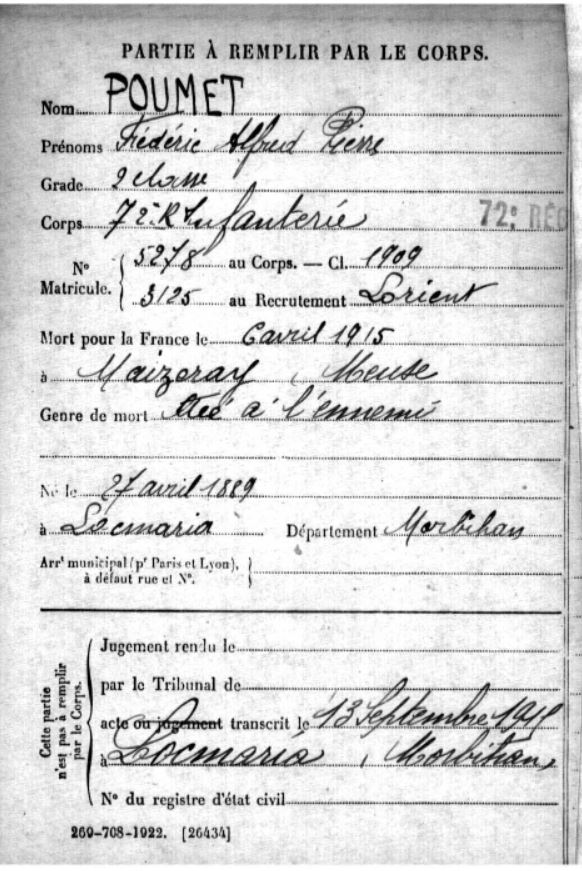 PARTIE À REMPLIR PAR LE CORPS.
Nom POUMET
Prénoms Frédéric Alfred Pierre
Grade 2 classe
Corps 72e R Infanterie
72e RÉG
5278 au Corps. — Cl. 1909
N° Matricule.
3125 au Recrutement Lorient
Mort pour la France le 6 avril 1915
à Maizeray, Meuse
Genre de mort tué à l'ennemi
Né le 27 avril 1889
à Locmaria Département Morbihan
Arrt municipal (pr Paris et Lyon),
à défaut rue et N°.
Cette partie
n'est pas à remplir
par le Corps.
Jugement rendu le
par le Tribunal de
acte ou jugement transcrit le 13 Septembre
à Locmaria, Morbihan,
N° du registre d'état civil
269-708-1922. [26434]